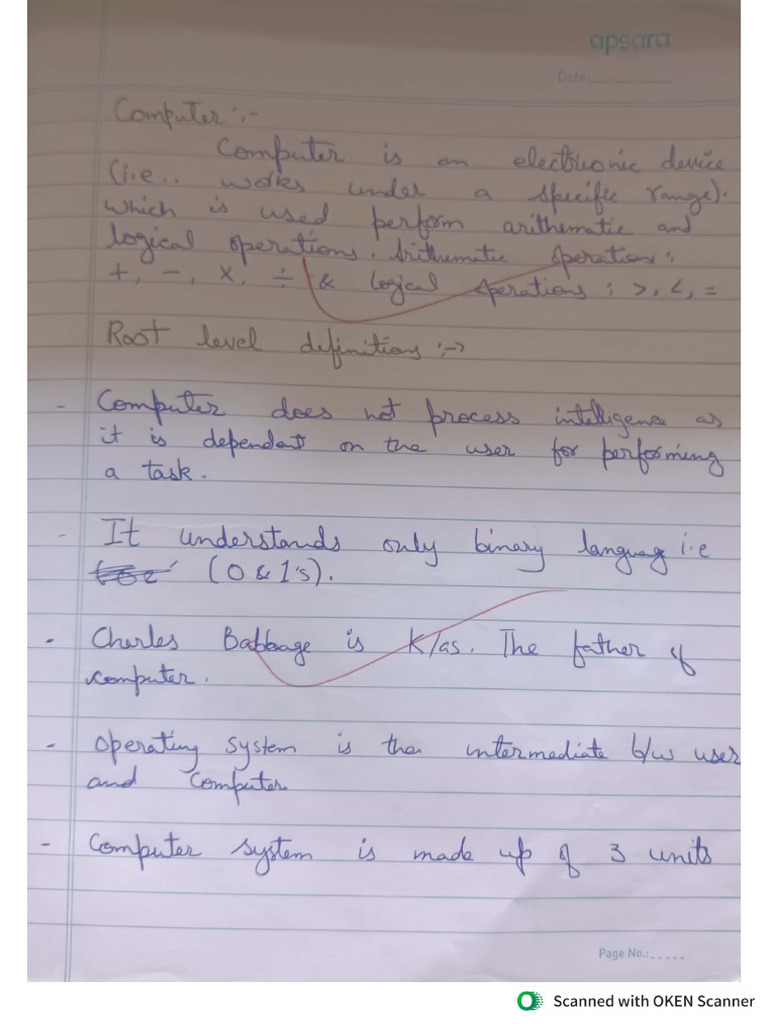 apsara
Date:
Computer :-
Computer is an electronic device
(i.e.. works under a specific range).
which is used perform arithematic and
logical operations. Arithematic operation :
+, -, x, ÷ & logical operations : >, <, =
Root level definitions :->
- Computer does not process intelligence as
it is dependent on the user for performing
a task.
- It understands only binary languag i.e
(0 & 1's).
- Charles Babbage is K/as. The father of
computer.
- Operating system is the intermediate b/w user
and computer.
- Computer system is made up of 3 units
Page No.:
Scanned with OKEN Scanner